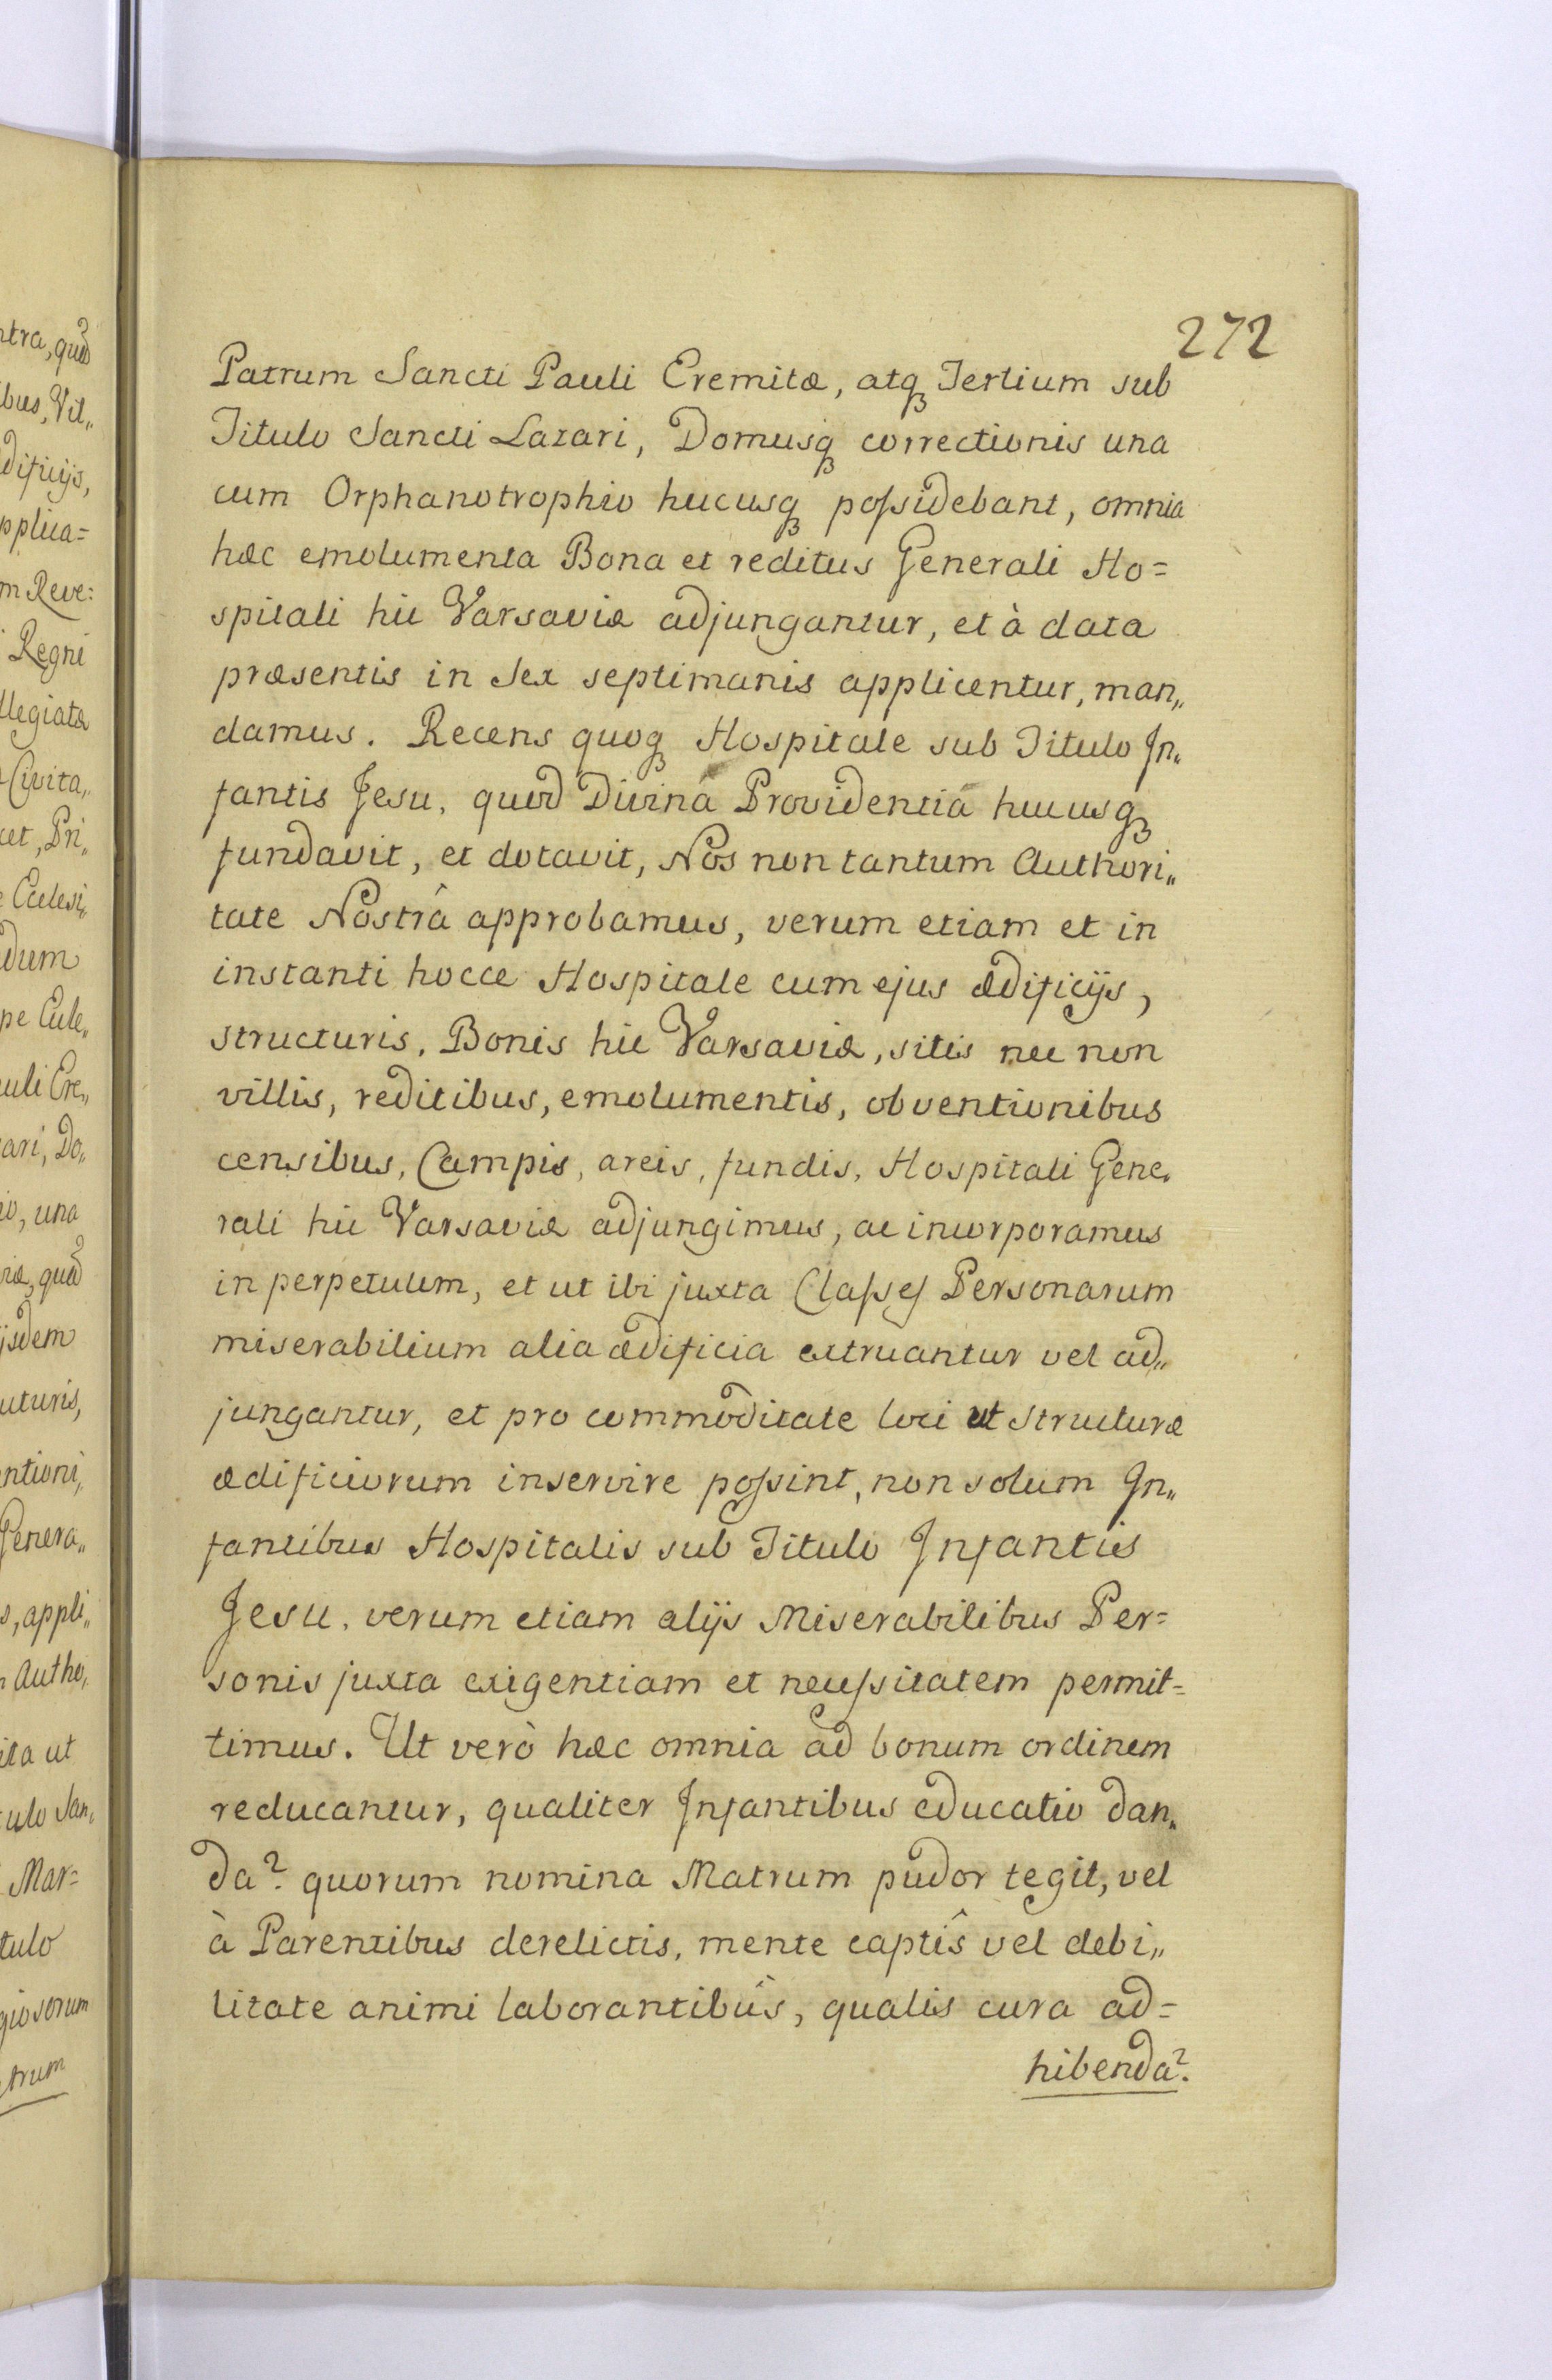 ntra, quod
ibus, Vil„
dificijs,
pplica=
m Reve:
Regni
llegiatæ
Civita„
cet, Pri„
Ecclesi„
dum
pe Eccle„
auli Ere„
ari, Do„
io, una
viæ, quod
ijsdem
ucturis,
ntioni„
Genera„
s, appli„
Autho„
ita ut
tulo San„
Mar=
tulo
giosorum
trum
272
Patrum Sancti Pauli Eremitæ, atqꝫ Tertium sub
Titulo Sancti Lazari, Domusqꝫ correctionis una
cum Orphanotrophio hucusqꝫ poſsidebant, omnia
hæc emolumenta Bona et reditus Generali Ho=
spitali hic Varsaviæ adjungantur, et à data
præsentis in Sex septimanis applicentur, man„
damus. Recens quoqꝫ Hospitale sub Titulo In„
fantis Jesu, quod Divinâ Providentiâ hucusqꝫ
fundavit, et dotavit, Nos non tantum Authori„
tate Nostrâ approbamus, verum etiam et in
instanti hocce Hospitale cum ejus ædificijs,
structuris, Bonis hic Varsaviæ, sitis nec non
villis, reditibus, emolumentis, obventionibus
censibus, Campis, areis, fundis, Hospitali Gene„
rali hic Varsaviæ adjungimus, ac incorporamus
in perpetuum, et ut ibi juxta Claſses Personarum
miserabilium alia ædificia extruantur vel ad„
jungantur, et pro commoditate loci ut structuræ
ædificiorum inservire poſsint, non solum In„
fantibus Hospitalis sub Titulo Infantis
Jesu, verum etiam alijs Miserabilibus Per=
sonis juxta exigentiam et neceſsitatem permit=
timus. Ut verò hæc omnia ad bonum ordinem
reducantur, qualiter Infantibus educatio dan„
da? quorum nomina Matrum pudor tegit, vel
à Parentibus derelictis, mente captîs vel debi„
litate animi laborantibûs, qualis cura ad=
hibenda?